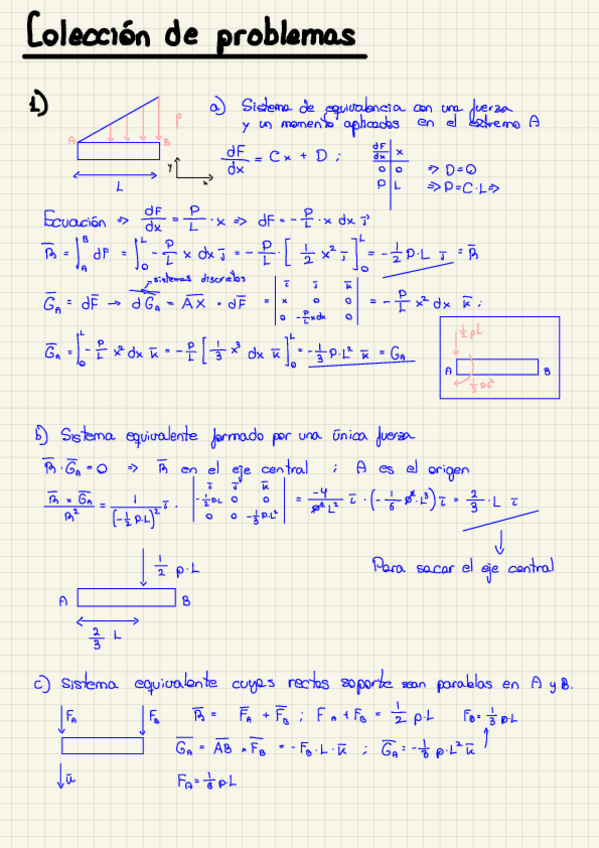 Colección de problemas
1)
a) Sistema de equivalencia con una fuerza
y un momento aplicados en el extremo A
P
A
B
L
y
x
dF/dx = Cx + D ;
dF/dx | x
0 | 0 ⇒ D=0
P | L ⇒ P=C·L ⇒
Ecuación ⇒ dF/dx = P/L · x ⇒ dF = - P/L · x dx j
R = ∫_A^B dF = ∫_0^L - P/L x dx j = - P/L · [ 1/2 x² j ]_0^L = - 1/2 P·L j = R
sistemas discretos
G_A = dF → dG_A = AX · dF = | i j k ; x 0 0 ; 0 -P/L x dx 0 | = - P/L x² dx k ;
G_A = ∫_0^L - P/L x² dx k = - P/L [ 1/3 x³ dx k ]_0^L = - 1/3 P·L² k = G_A
1/2 pL
A
B
1/3 pL²
b) Sistema equivalente formado por una única fuerza
R · G_A = 0 ⇒ R en el eje central ; A es el origen
R × G_A / R² = 1/(-1/2 P·L)² i · | i j k ; -1/2 PL 0 0 ; 0 0 -1/3 P·L² | = -4/P²L² i · (- 1/6 P² · L³) i = 2/3 · L i
Para sacar el eje central
1/2 p·L
A
B
2/3 L
c) Sistema equivalente cuyas rectas soporte sean paralelas en A y B.
F_A
F_B
R = F_A + F_B ; F_A + F_B = 1/2 p·L
F_B = 1/3 p·L
G_A = AB × F_B = - F_B · L · k ; G_A = - 1/3 p·L² k
u
F_A = 1/6 p·L